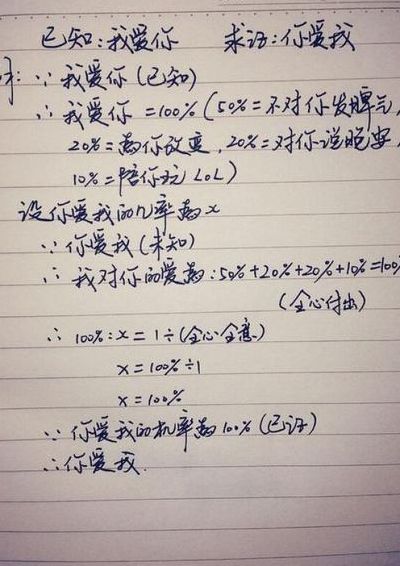 已知:我爱你 求证:你爱我
∵ 我爱你(已知)
∴ 我爱你=100%(50%=不对你发脾气,
20%=为你改变,20%=对你说晚安,
10%=陪你玩LOL)
设你爱我的几率为x
∵ 你爱我(未知)
∴ 我对你的爱为:50%+20%+20%+10%=100%
(全心付出)
∴ 100%:x=1÷(全心全意)
x=100%÷1
x=100%
∵ 你爱我的机率为100%(已证)
∴ 你爱我.